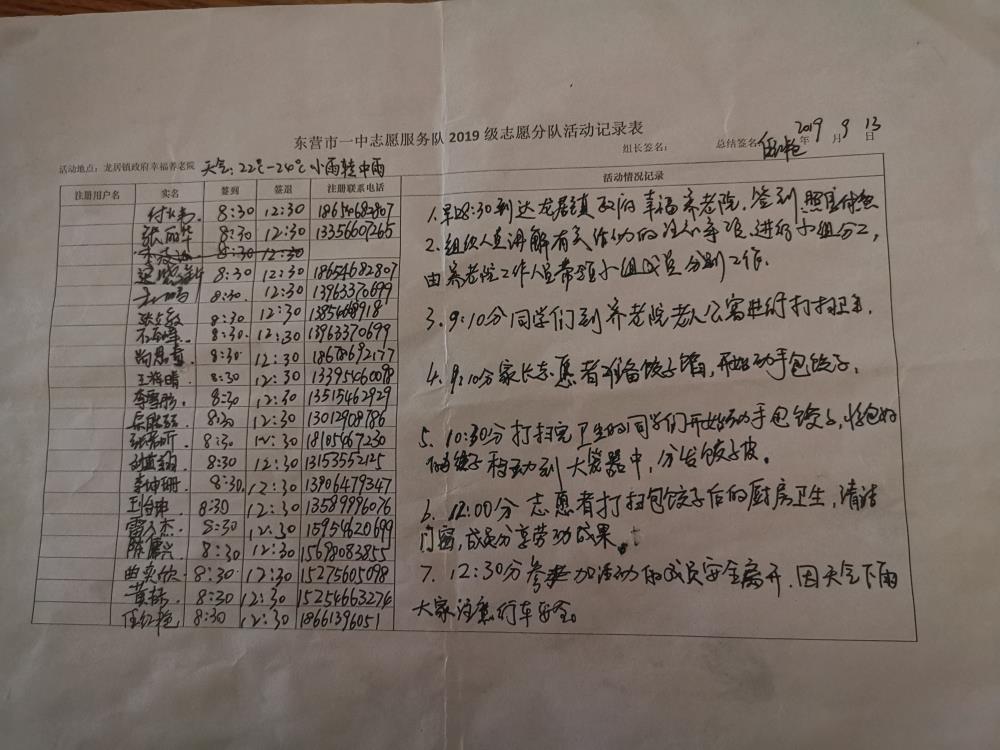 东营市一中志愿服务队 2019 级志愿分队活动记录表
组长签名： 总结签名： 2019 年 9 月 13 日
活动地点：龙居镇政府幸福养老院 天气：22℃-24℃ 小雨转中雨
注册用户名 实名 签到 签退 注册联系电话 活动情况记录
8:30 12:30 18654682807
张丽华 8:30 12:30 13356607265
8:30 12:30
8:30 12:30 18654682807
8:30 12:30 13963370699
8:30 12:30 1385468918
8:30 12:30 13963370699
8:30 12:30 18678692177
王梓晴 8:30 12:30 13395460098
8:30 12:30 13515462929
8:30 12:30 13012908786
8:30 12:30 18105467230
8:30 12:30 13153552125
李坤珊 8:30 12:30 13906479347
8:30 12:30 13589996076
8:30 12:30 15954620699
陈震兴 8:30 12:30 15698083855
曲奕欣 8:30 12:30 15275605098
8:30 12:30 15254663274
任红艳 8:30 12:30 18661396051
1. 早8:30到达龙居镇政府幸福养老院，签到，照
2. 组织人员讲解有关活动的注意事项，进行小组分工，
由养老院工作人员带领小组成员分别工作。
3. 9:10分同学们到养老院老人公寓进行打扫卫生。
4. 9:10分家长志愿者准备饺子馅，开始动手包饺子。
5. 10:30分打扫完卫生的同学们开始动手包饺子，将包好
的饺子移动到大容器中，分发饺子皮。
6. 12:00分志愿者打扫包饺子后的厨房卫生，清洁
门窗，成员分享劳动成果。
7. 12:30分参加活动的成员安全离开，因天气下雨
大家注意行车安全。